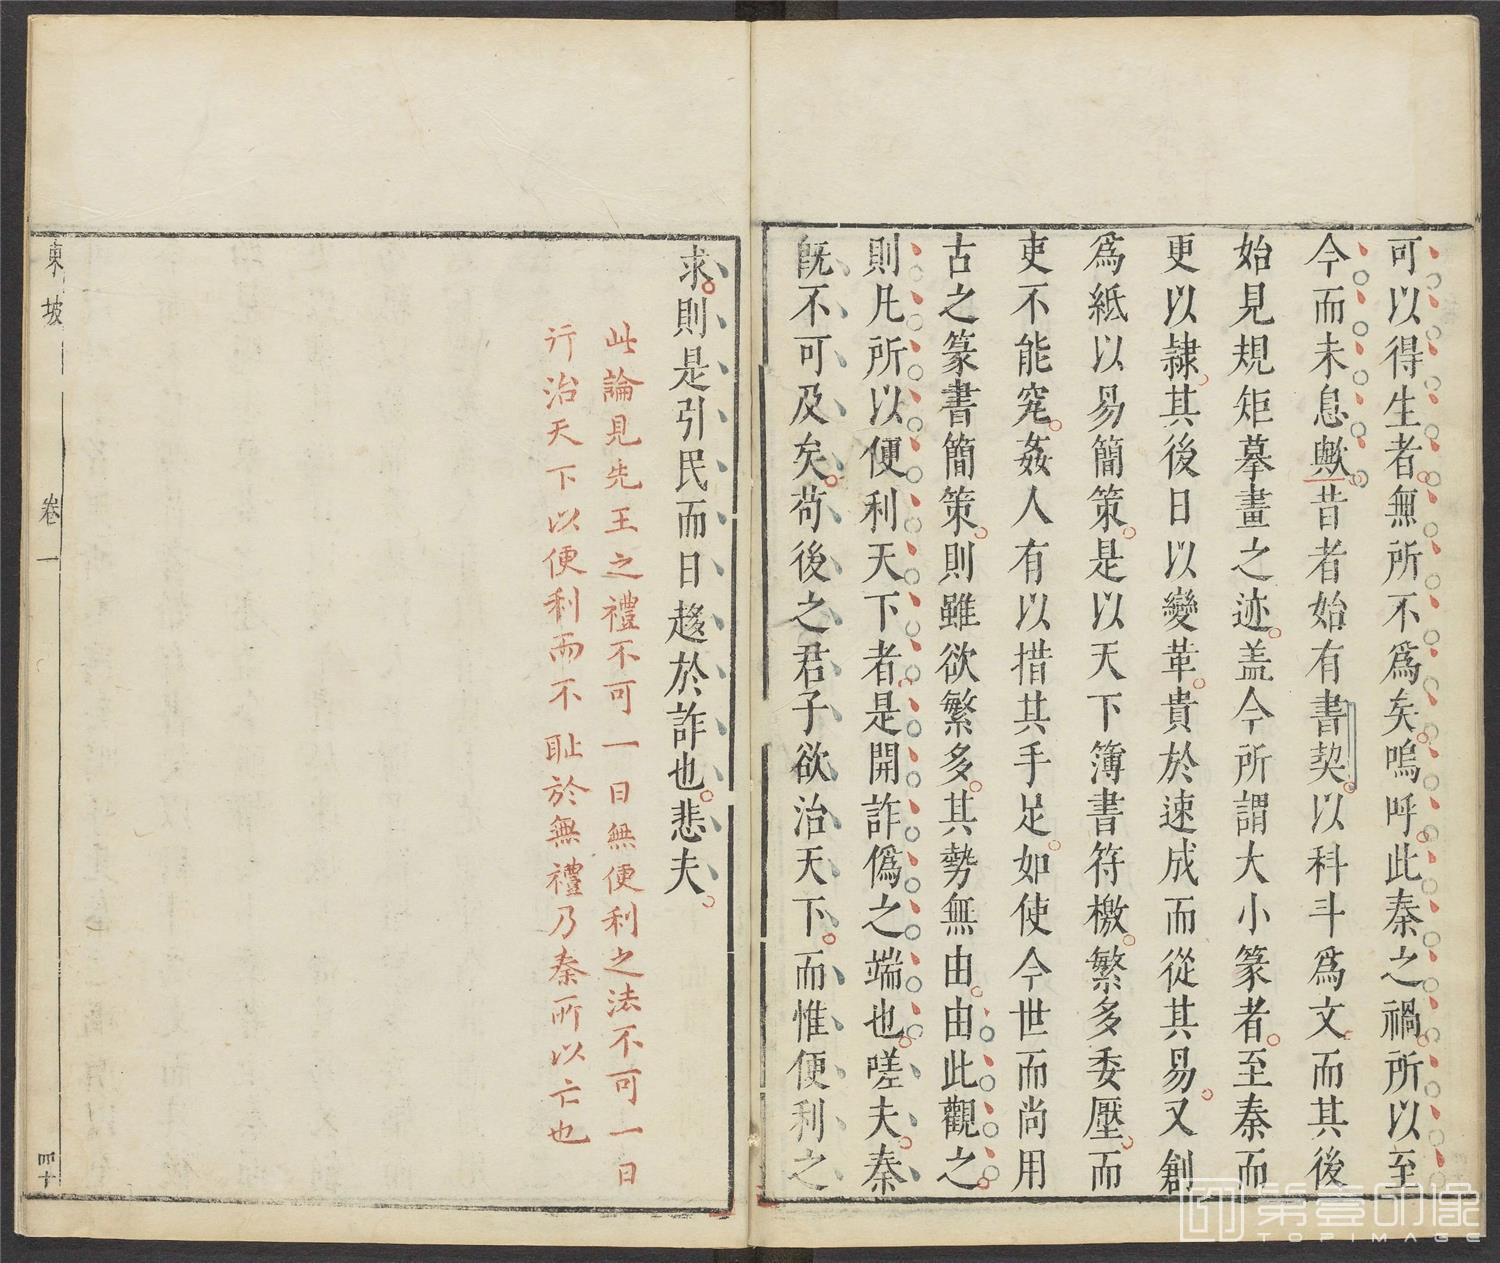 可以得生者無所不爲矣嗚呼此秦之禍所以至
今而未息歟昔者始有書契以科斗爲文而其後
始見規矩摹畫之迹盖今所謂大小篆者至秦而
更以隸其後日以變革貴於速成而從其易又創
爲紙以易簡策是以天下簿書符檄繁多委壓而
吏不能究姦人有以措其手足如使今世而尚用
古之篆書簡策則雖欲繁多其勢無由由此觀之
則凡所以便利天下者是開詐僞之端也嗟夫秦
旣不可及矣苟後之君子欲治天下而惟便利之
求則是引民而日趨於詐也悲夫
此論見先王之禮不可一日無便利之法不可一日
行治天下以便利而不恥於無禮乃秦所以亡也
東坡 卷一 四十
第壹印像
TOPIMAGE